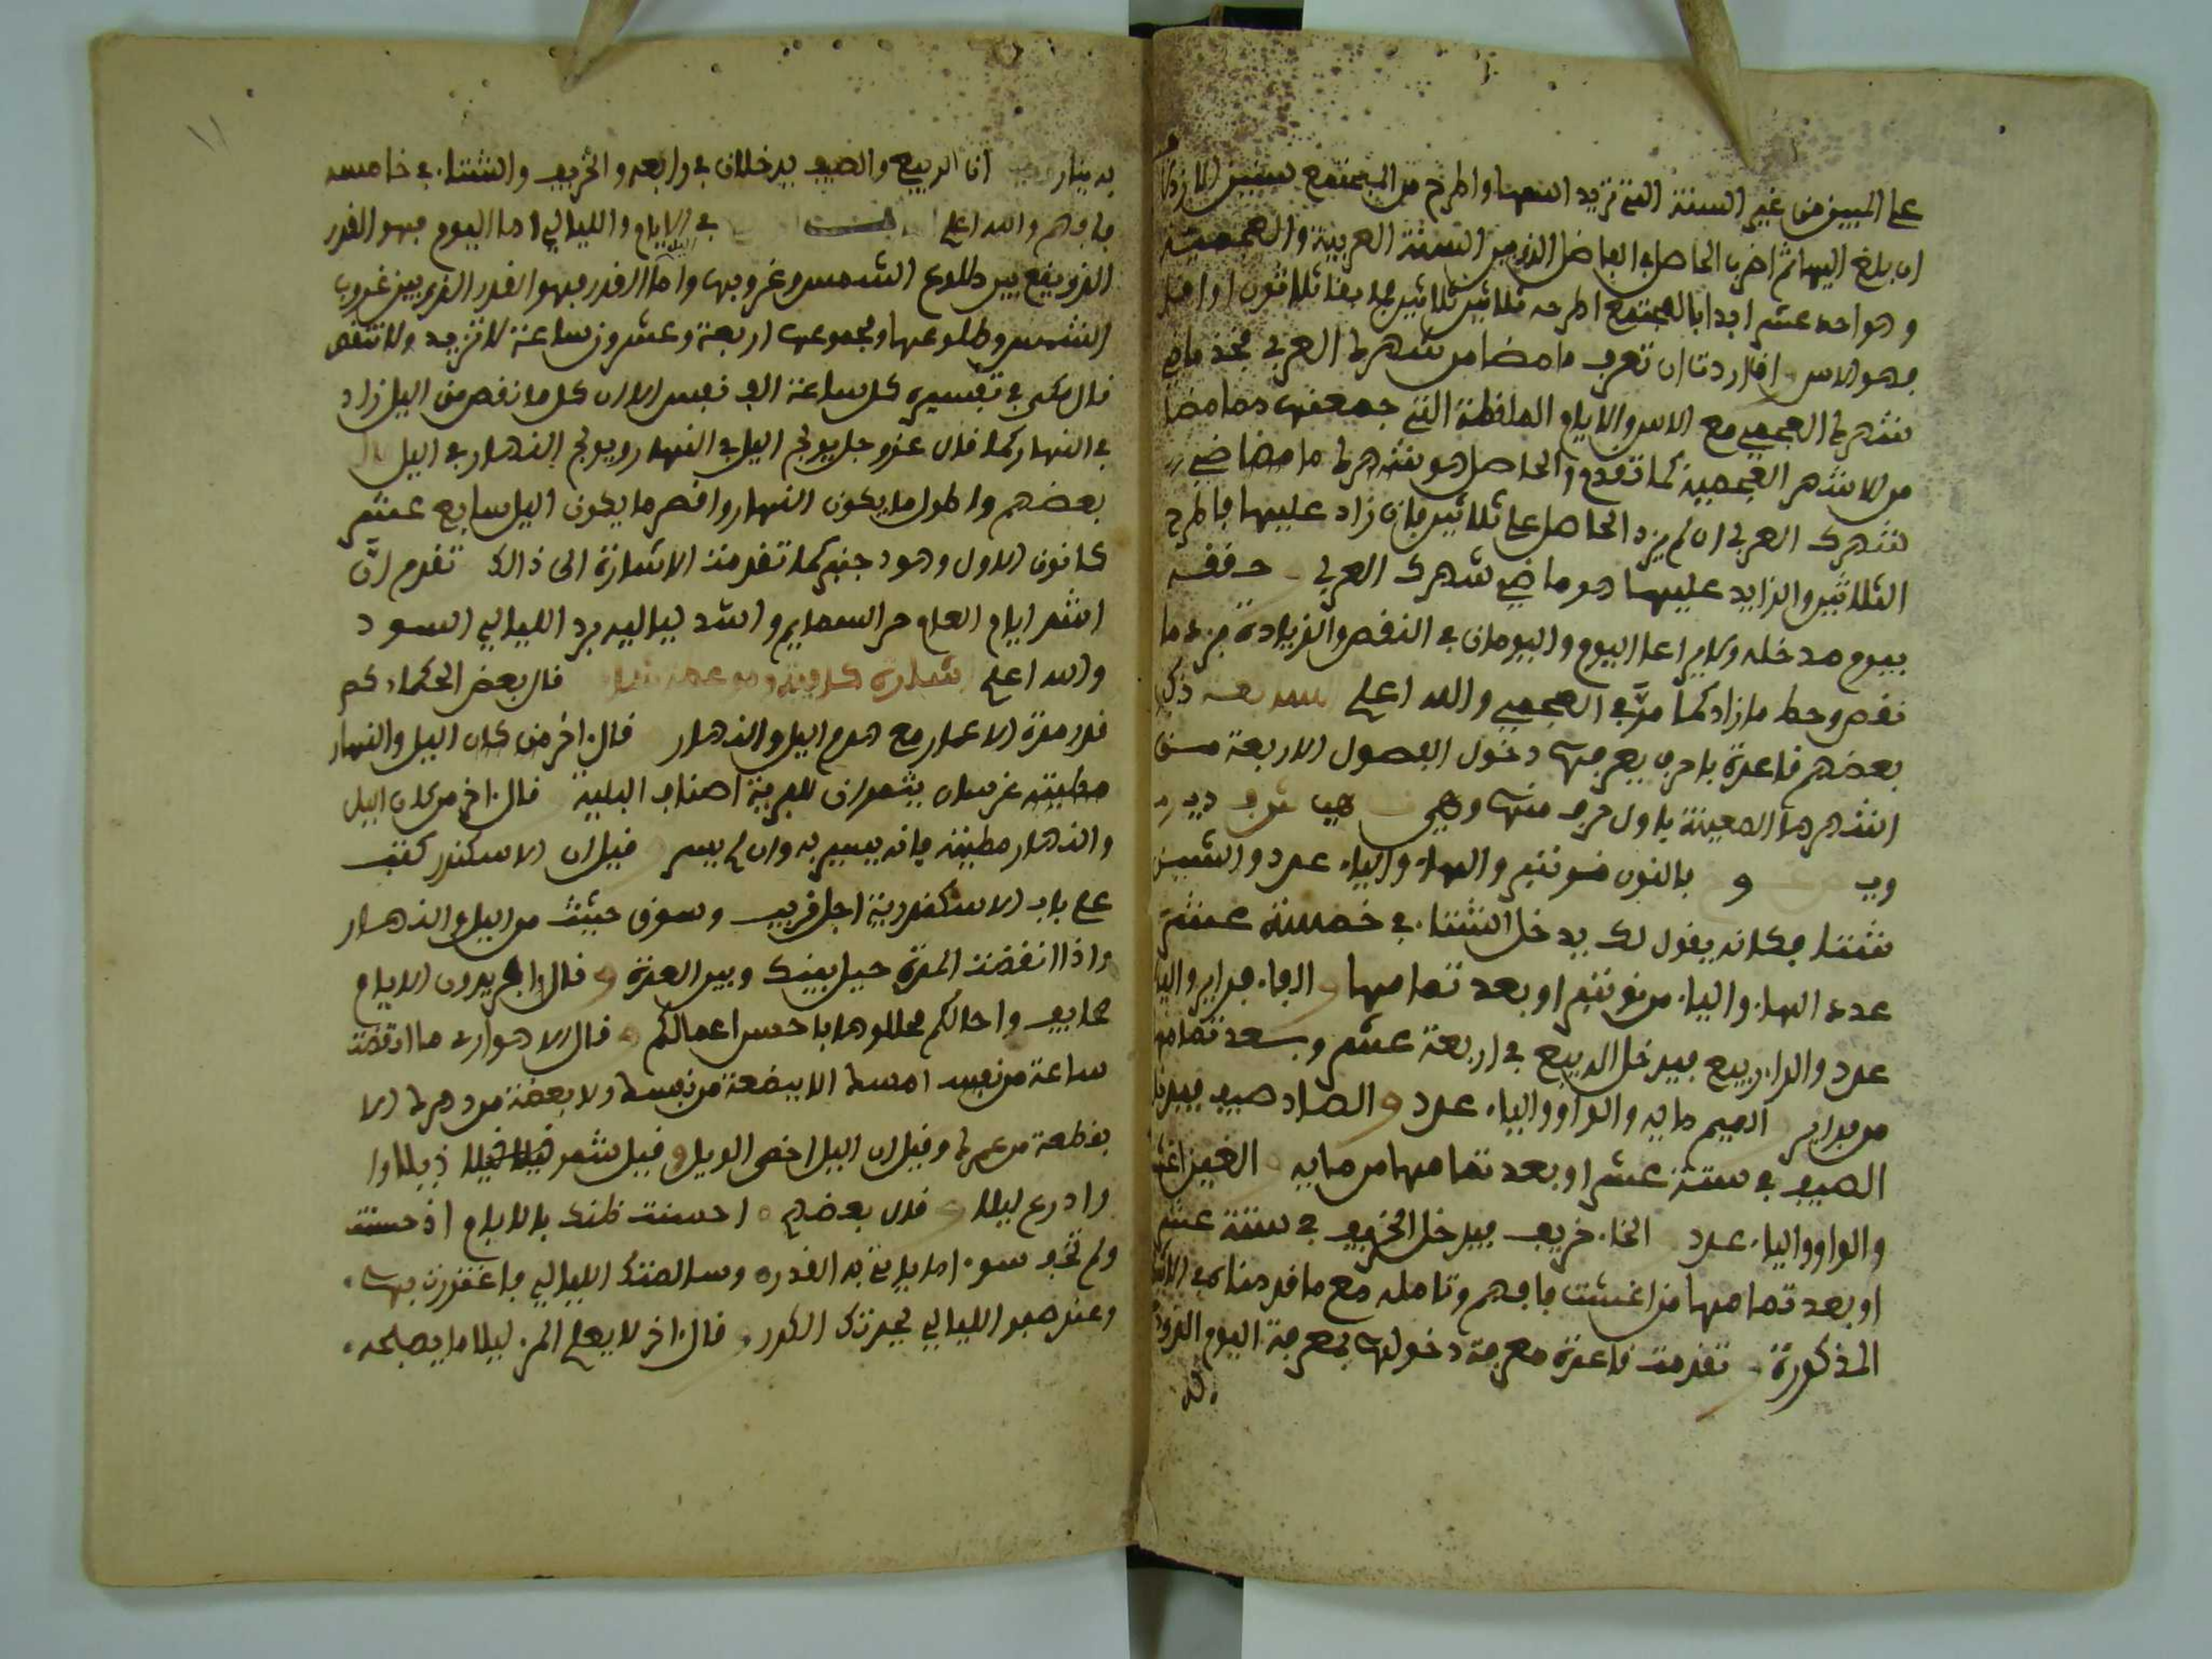 على المبين من غير السنة التي تريد اليها واطرح من المجتمع سنين الازدلا
ان بلغ اليها ثم اضرب الحاصل في الفاضل الذي بين السنة العربية والعجمية
وهو احد عشر ابدا بالمجتمع اطرحه ثلاثين ثلاثين فما بقا ثلاثون او اقل
فهو الاس اذا اردت ان تعرف ما مضا من شهرك العربي فخذ ماضي
شهرك العجمي مع الاس والايام الملفظة التي جمعتها مما مضا
من الاشهر العجمية كما تقدم والحاصل هو شهرك ما مضا ضي
شهرك العربي ان لم يزد الحاصل على ثلاثين فان زاد عليها فاطرح
الثلاثين والزايد عليها هو ماضي شهرك العربي حققه
بيوم مدخله ولا يراعا اليوم واليومان في النقص والزيادة فزد ما
نقص وحط ما زاد كما مر في العجمي والله اعلم ذكر
بعضهم قاعدة باحرف يعرف بها دخول الفصول الاربعة من
اشهرها المعينة باول حرف منها وهي
وب و بالنون نونبر والهاء والياء عدد والشين
شتا فكانه يقول لك يدخل الشتاء في خمسة عشر
عدد الهاء والياء من نونبر او بعد تمامها والفاء فبراير واليا
عدد والراء ربيع فيدخل الربيع في اربعة عشر وبعد تمامها
من فبراير الميم مايه والواو والياء عدد والصاد صيف فيدخل
الصيف في ستة عشر او بعد تمامها من مايه الغين اغشت
والواو والياء عدد الخاء خريف فيدخل الخريف في ستة عشر
او بعد تمامها من اغشت فافهم وتامله مع ما قدمناه في الا
المذكورة تقدمت قاعدة معرفة دخولها بمعرفة اليوم الذي
به
به يناير ان الربيع والصيف يدخلان في رابعه والخريف والشتاء في خامسه
فافهم والله اعلم في الايام والليالي اما اليوم فهو القدر
الذي يقع بين طلوع الشمس وغروبها واما الليل فهو القدر الذي بين غروب
الشمس وطلوعها ومجموعها اربعة وعشرون ساعة لا تزيد ولا تنقص
قال مكي في تفسيره كل ساعة الف نفس الا ان كل ما نقص من اليل زاد
في النهار كما قال عز وجل يولج اليل في النهار ويولج النهار في اليل قال
بعضهم واطول ما يكون النهار واقصر ما يكون اليل سابع عشر
كانون الاول وهو دجنبر كما تقدمت الاشارة الى ذالك تقدم ان
اشر ايام العام حر السمايم واشد لياليه برد الليالي السود
والله اعلم قال بعض الحكماء كم
قدر مدة الاعمار مع هدم اليل والنهار قال اخر من كان اليل والنهار
مطيته غرسان يثمران للبرية اصناف البلية قال اخر من كان اليل
والنهار مطيته فانه يسير به وان لم يسر قيل ان الاسكندر كتب
على باب الاسكندرية اجل قريب وسوق حثيث من اليل والنهار
واذا انقضت المدة حيل بينك وبين العدة وقال الايام
صحايف واجالكم فخلدوها باحسن اعمالكم قال الاهوازي ما انقضت
ساعة من نفس امسك الا ببضعة من نفسك ولا بعضة من دهرك الا
بقطعة من عمرك وقيل ان اليل اخفى الويل وقيل شمر ذيلا وا
وادرع ليلا قال بعضهم احسنت ظنك بالايام اذ حسنت
ولم تخف سوء ما ياتي به القدر وسالمتك الليالي فاغتررت بها
وعند صفو الليالي يحدث الكدر قال اخر لا يعلم المرء ليلا ما يصبحه